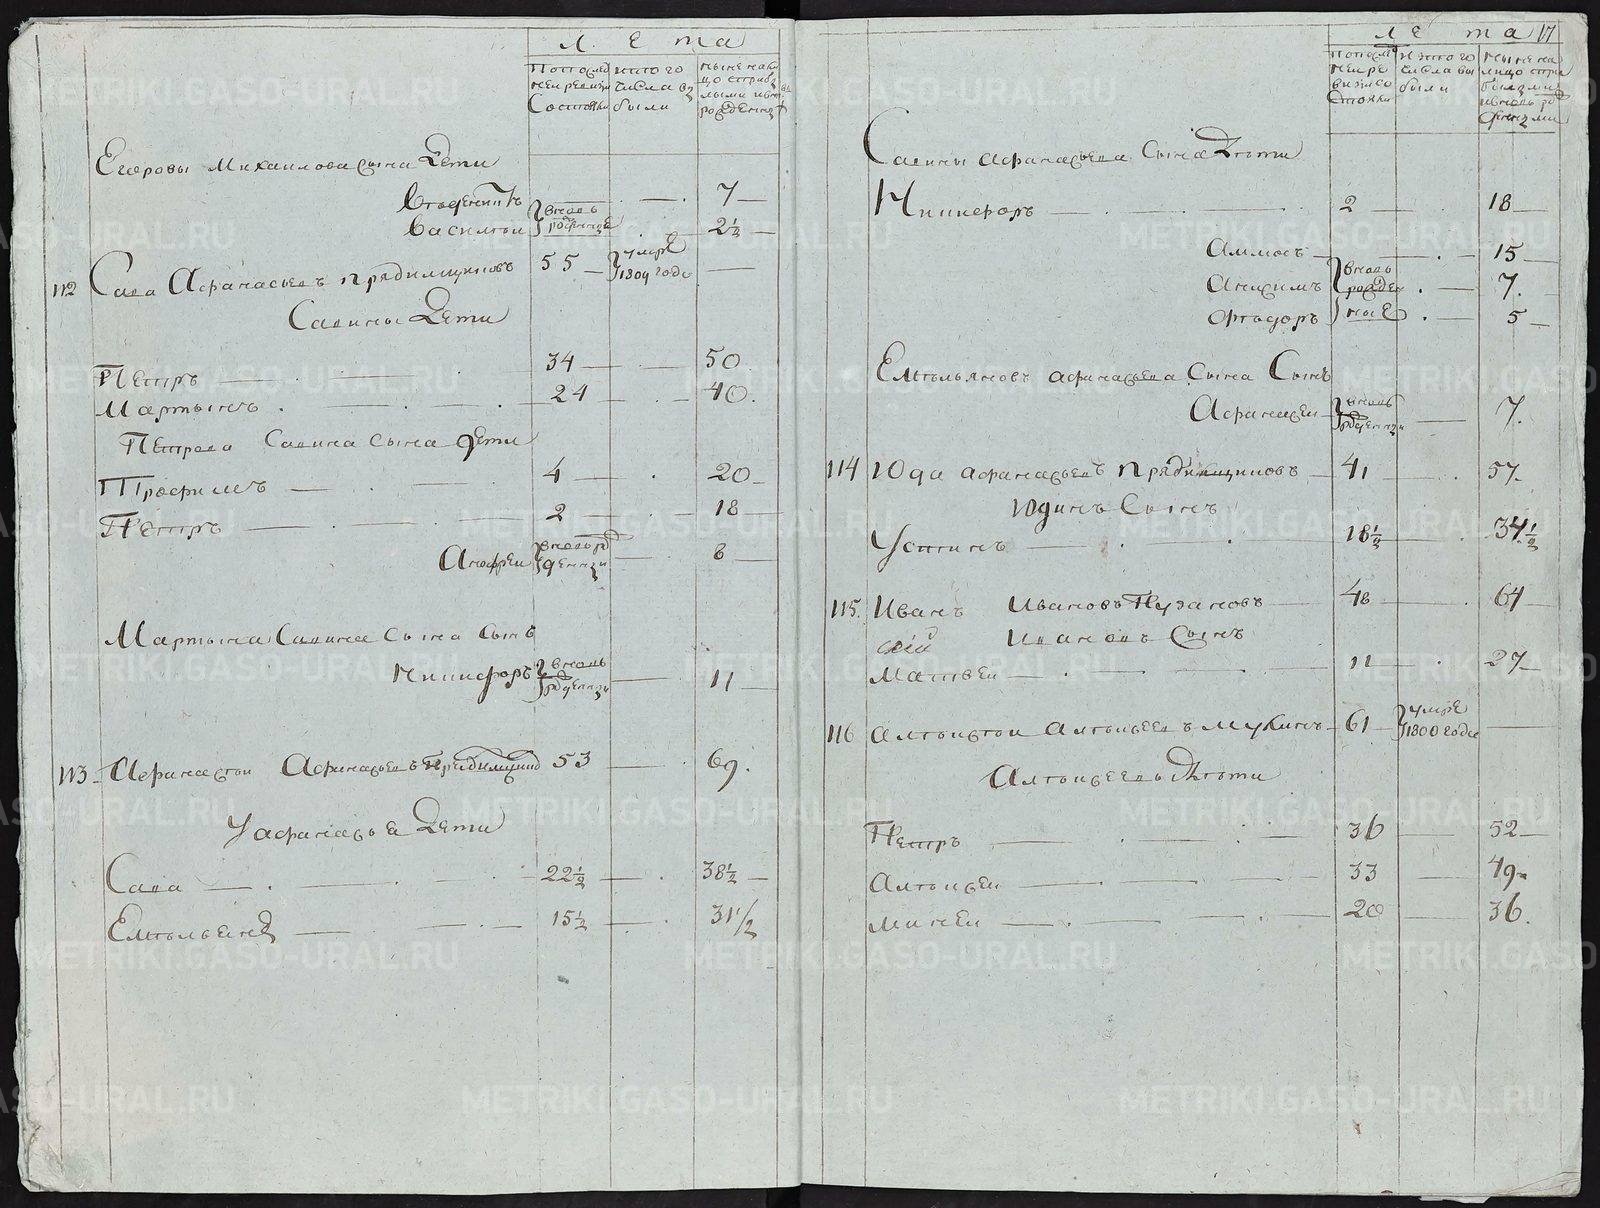 Лета
По последней ревизии состояли
из того числа выбыли
ныне на лицо с прибылыми и вновь рожденными
Егоровы Михаилова сына Дети
вновь рожденные
7
Василеи
2½
112 Сава Афанасьевъ Прядилщиковъ 55 умре 1809 годе
Савины Дети
Петръ 34 50
Мартынъ 24 40.
Петрова Савина сына дети
Трофимъ 4 20
Петръ 2 18
Андреи вновь рожденныи 8
Мартына Савина сына сынъ
Никифоръ вновь рожденныи 11
113 Афанасеи Афанасьевъ Прядилщиков 53 69.
У Афанасья Дети
Сава 22½ 38½
Емельянъ 15½ 31½
Лета 17
По последнеи ревизии состояли
из того числа выбыли
ныне на лицо с прибылыми и вновь рожденными
Савины Афанасьева сына Дети
Никифоръ 2 18
Аммосъ 15
вновь рожденные
Анисимъ 7.
Феодоръ 5
Емельяновъ Афанасьева сына Сынъ
Афанасеи вновь рожденныи 7.
114 Юда Афанасьевъ Прядилщиковъ 41 57.
Юдинъ Сынъ
Устинъ 18½ 34½
115. Иванъ Ивановъ Пузановъ 48 64
Ивановъ Сынъ
Матвеи 11 27
116 Алексеи Алексеевъ Мукинъ 61 умре 1800 годе
Алексеевы Дети
Петръ 36 52
Алексеи 33 49
Минеи 20 36.
METRIKI.GASO-URAL.RU